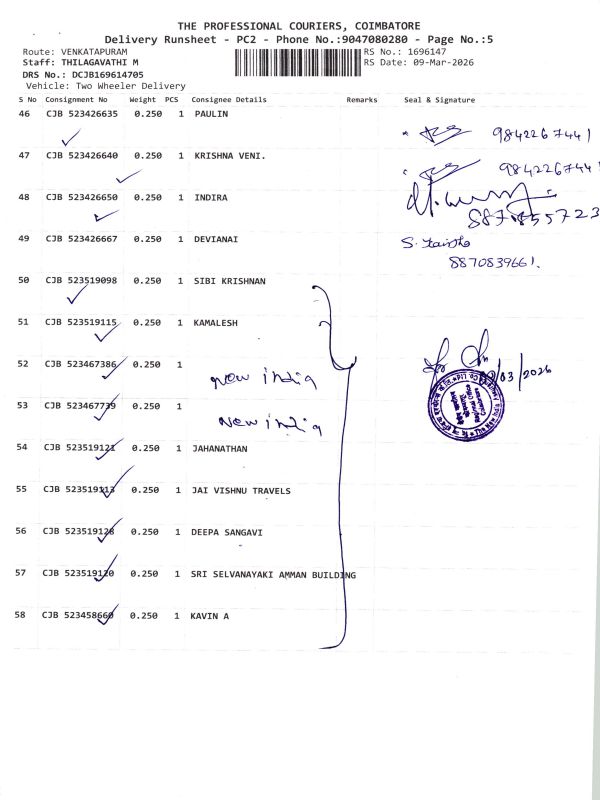 THE PROFESSIONAL COURIERS, COIMBATORE
Delivery Runsheet - PC2 - Phone No.:9047080280 - Page No.:5
Route: VENKATAPURAM RS No.: 1696147
Staff: THILAGAVATHI M RS Date: 09-Mar-2026
DRS No.: DCJB169614705
Vehicle: Two Wheeler Delivery
S No Consignment No Weight PCS Consignee Details Remarks Seal & Signature
46 CJB 523426635 0.250 1 PAULIN
9842267441
47 CJB 523426640 0.250 1 KRISHNA VENI.
984226744
48 CJB 523426650 0.250 1 INDIRA
49 CJB 523426667 0.250 1 DEVIANAI
8870839661.
50 CJB 523519098 0.250 1 SIBI KRISHNAN
51 CJB 523519115 0.250 1 KAMALESH
52 CJB 523467386 0.250 1
New india
/03/2026
53 CJB 523467739 0.250 1
New india
54 CJB 523519121 0.250 1 JAHANATHAN
55 CJB 523519113 0.250 1 JAI VISHNU TRAVELS
56 CJB 523519128 0.250 1 DEEPA SANGAVI
57 CJB 523519120 0.250 1 SRI SELVANAYAKI AMMAN BUILDING
58 CJB 523458660 0.250 1 KAVIN A